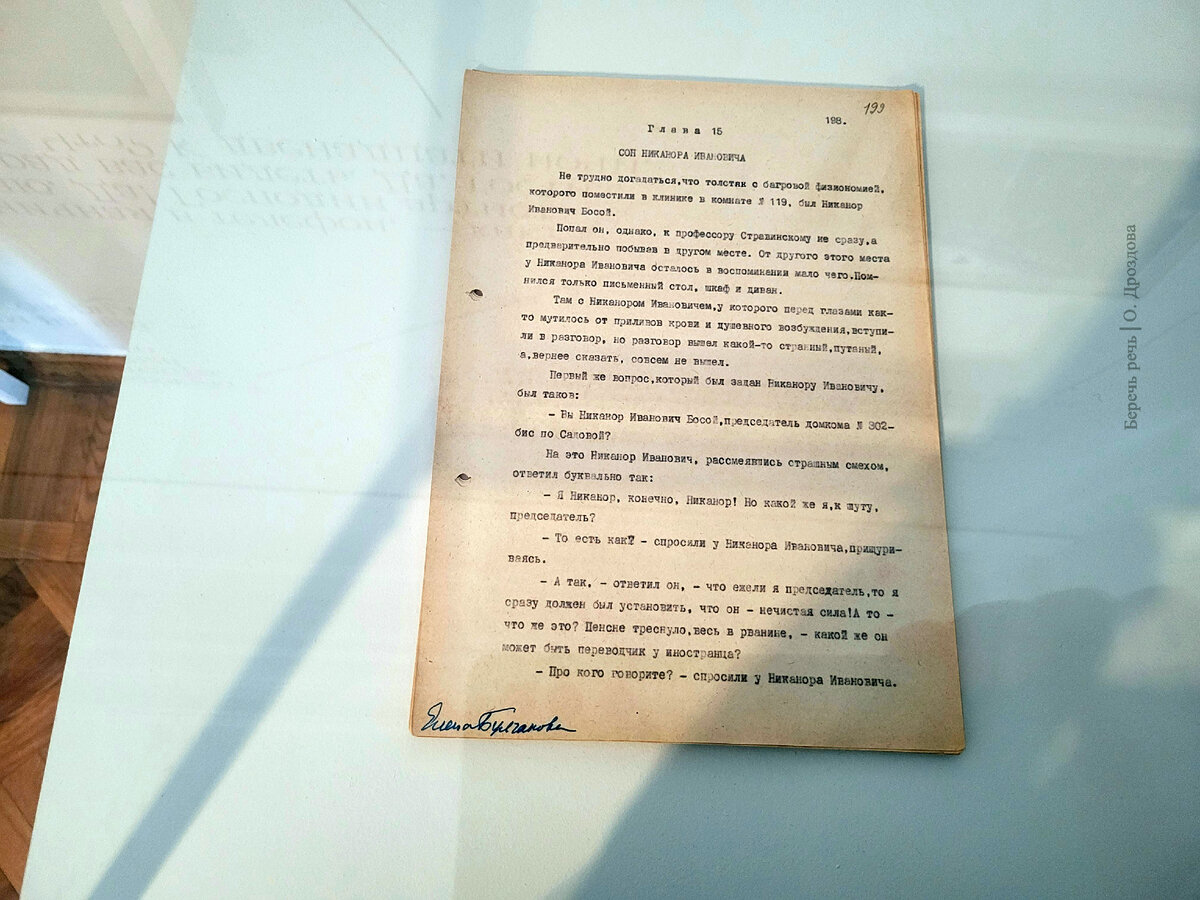 199
198.
Глава 15
СОН НИКАНОРА ИВАНОВИЧА
Не трудно догадаться,что толстяк с багровой физиономией,
которого поместили в клинике в комнате № 119, был Никанор
Иванович Босой.
Попал он, однако, к профессору Стравинскому не сразу,а
предварительно побывав в другом месте. От другого этого места
у Никанора Ивановича осталось в воспоминании мало чего.Пом-
нился только письменный стол, шкаф и диван.
Там с Никанором Ивановичем,у которого перед глазами как-
то мутилось от приливов крови и душевного возбуждения,вступи-
ли в разговор, но разговор вышел какой-то странный,путаный,
а,вернее сказать, совсем не вышел.
Первый же вопрос,который был задан Никанору Ивановичу,
был таков:
- Вы Никанор Иванович Босой,председатель домкома № 302-
бис по Садовой?
На это Никанор Иванович, рассмеявшись страшным смехом,
ответил буквально так:
- Я Никанор, конечно, Никанор! Но какой же я,к шуту,
председатель?
- То есть как? - спросили у Никанора Ивановича,прищури-
ваясь.
- А так, - ответил он, - что ежели я председатель,то я
сразу должен был установить, что он - нечистая сила!А то -
что же это? Пенсне треснуло,весь в рванине, - какой же он
может быть переводчик у иностранца?
- Про кого говорите? - спросили у Никанора Ивановича.
Елена Булгакова
Беречь речь | О. Дроздова